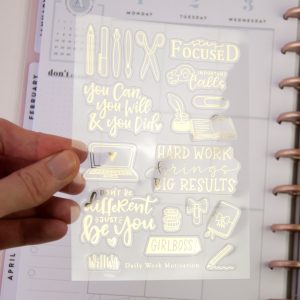 MONDAY
TUESDAY
WEDNESDAY
FEBRUARY
APRIL
don't
stay
FOCUSED
IMPORTANT
Calls
you Can,
you Will
& you Did
HARD WORK
brings
BIG RESULTS
DON'T BE
different
JUST
be
you
GIRLBOSS
Daily Work Motivation